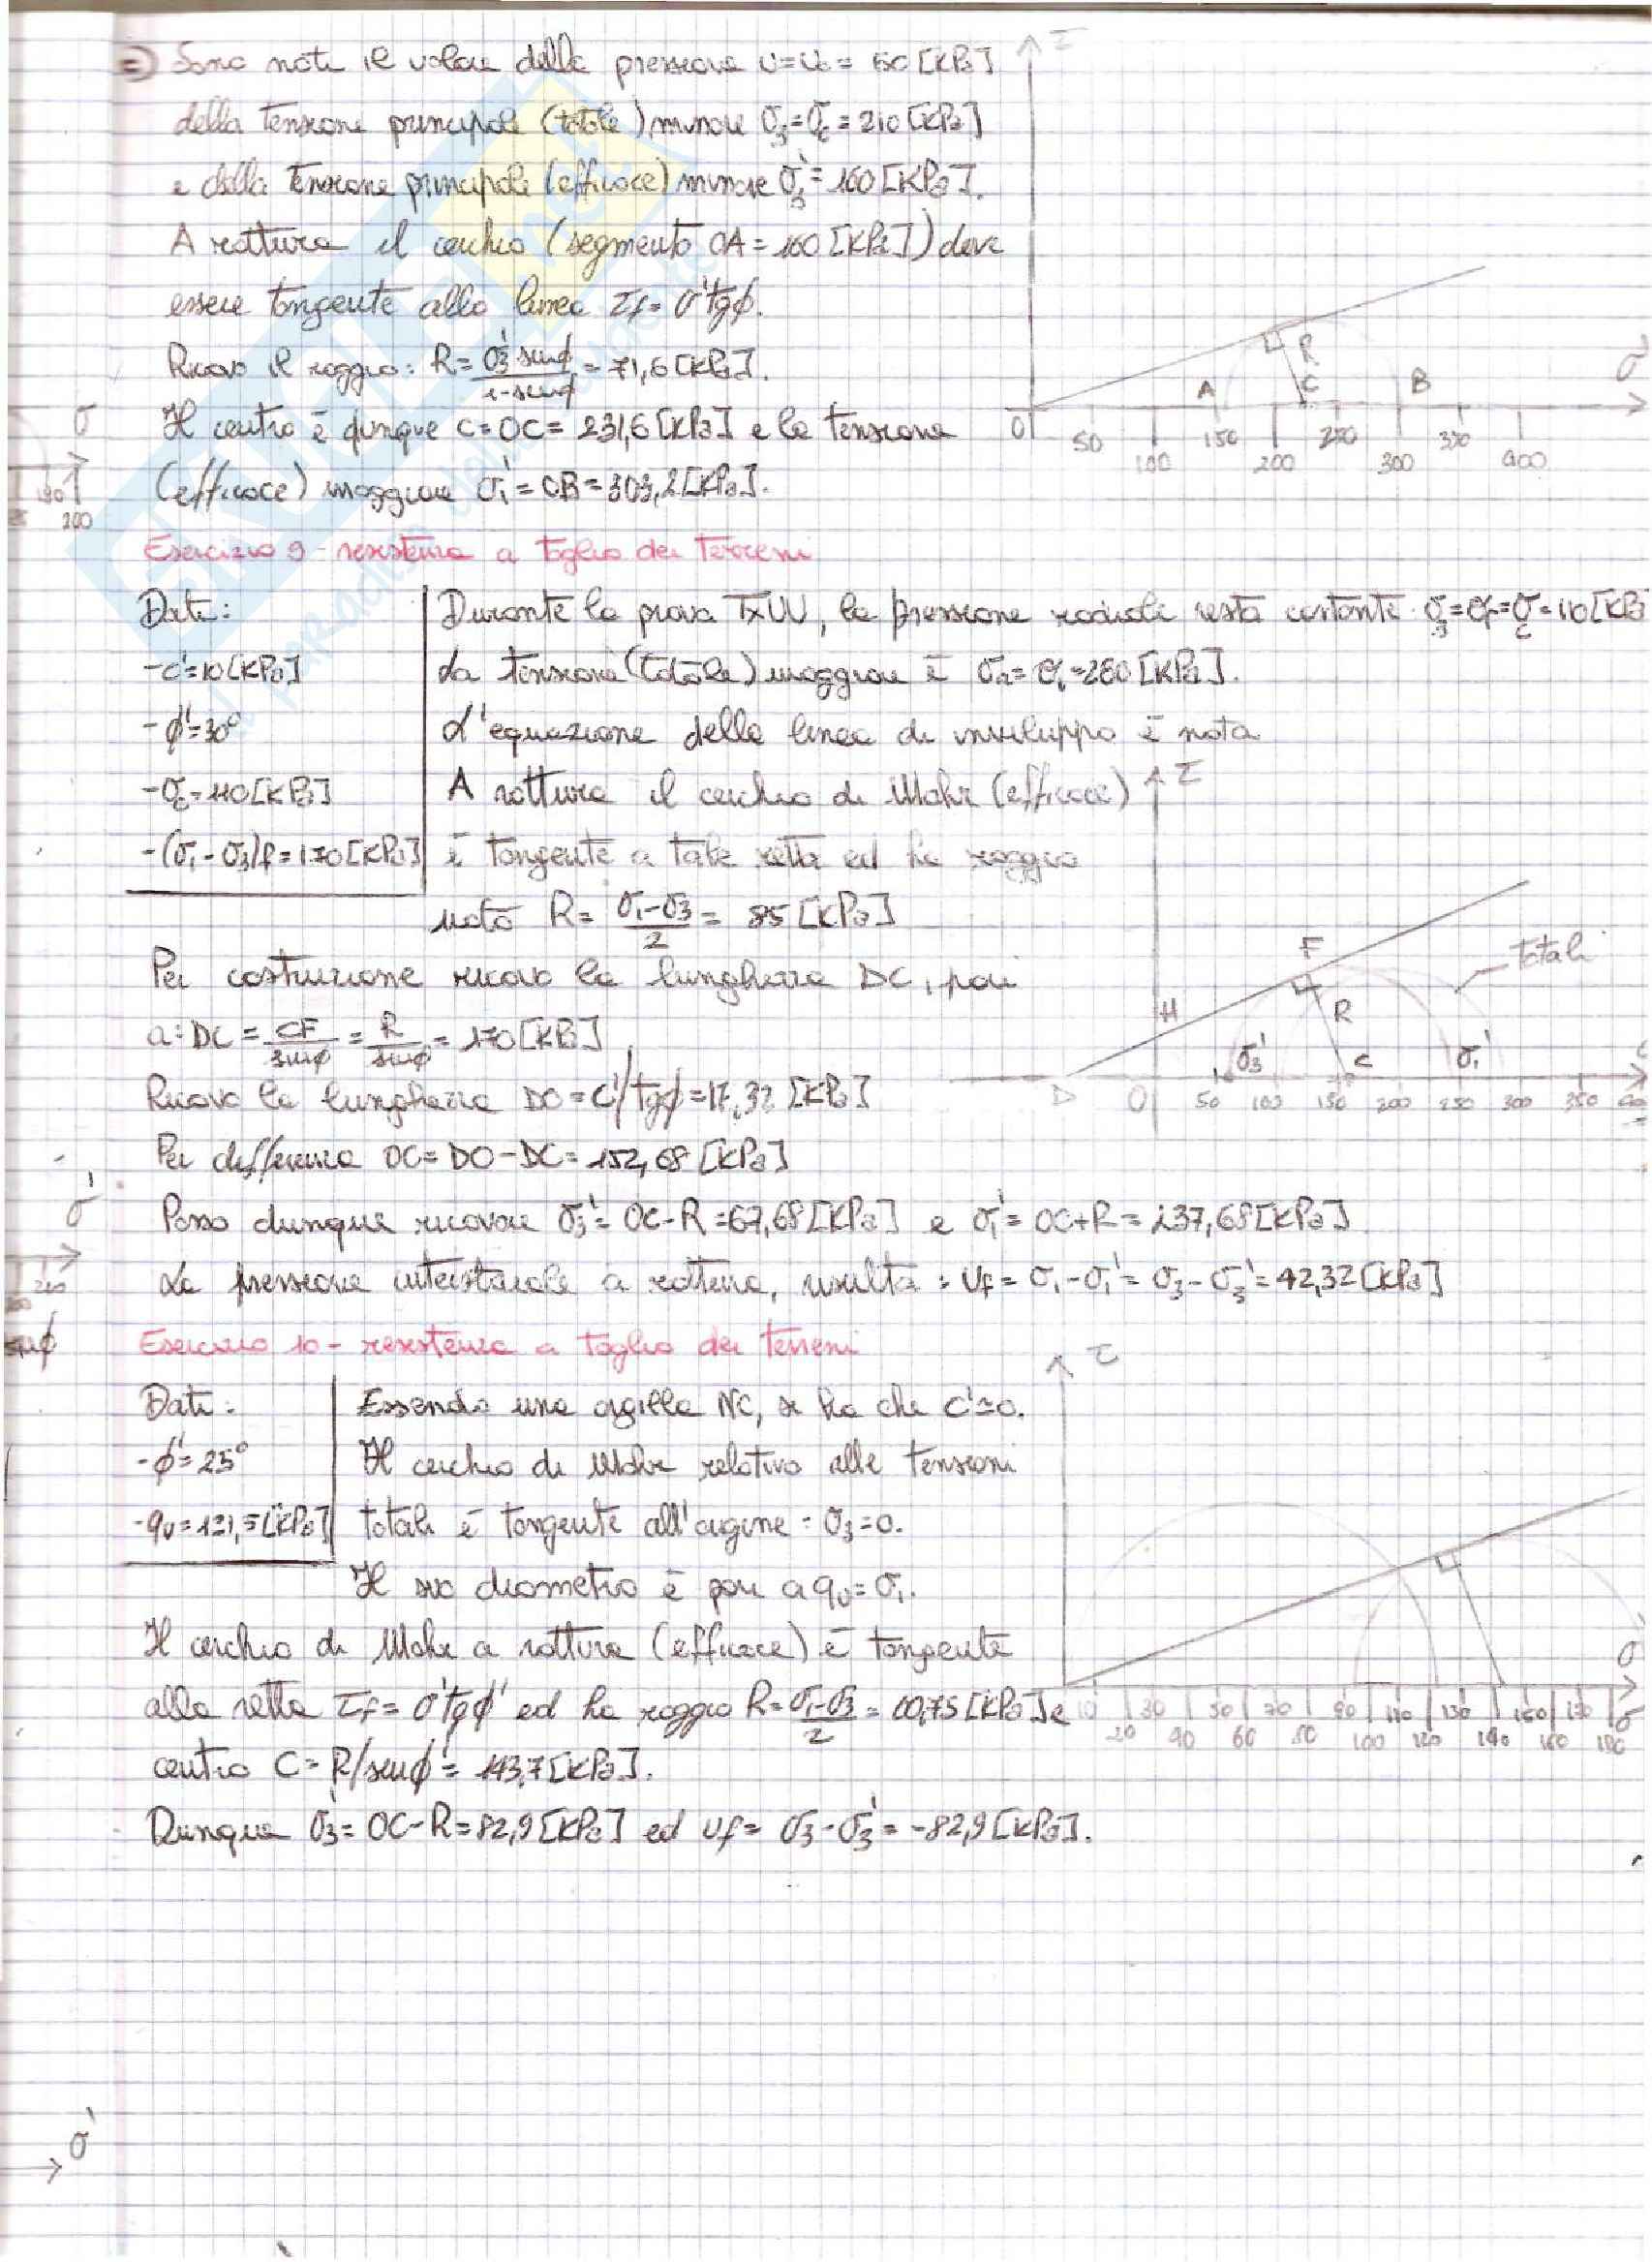 =) Sono noti il valore della pressione u=u₀= 50 [kPa]
della tensione principale (totale) minore σ₃=σc=210 [kPa]
e della tensione principale (efficace) minore σ₃'=160 [kPa].
A rottura il cerchio (segmento OA=160 [kPa]) deve
essere tangente alla linea τf=σ'tgϕ.
Ricavo il raggio: R= σ₃' senϕ / 1-senϕ = 71,6 [kPa].
Il centro è dunque C=OC= 231,6 [kPa] e la tensione
(efficace) maggiore σ₁'=OB=303,2 [kPa].
τ
R
A C B
σ'
O 50 100 150 200 250 300 350 400
σ
200
Esercizio 9 - resistenza a taglio dei terreni
Dati:
-c'=10 [kPa]
-ϕ'=30°
-σc=110 [kPa]
-(σ₁-σ₃)f=170 [kPa]
Durante la prova TxUU, la pressione radiale resta costante σ₃=σr=σc=110 [kPa
La tensione (totale) maggiore è σa=σ₁=280 [kPa].
L'equazione della linea di inviluppo è nota
A rottura il cerchio di Mohr (efficace)
è tangente a tale retta ed ha raggio
noto R= σ₁-σ₃ / 2 = 85 [kPa]
Per costruzione ricavo la lunghezza DC, pari
a: DC= CF/senϕ = R/senϕ = 170 [kPa]
Ricavo la lunghezza DO=c'/tgϕ=17,32 [kPa]
Per differenza OC=DO-DC=152,68 [kPa]
Posso dunque ricavare σ₃'=OC-R=67,68 [kPa] e σ₁'=OC+R=237,68 [kPa]
La pressione interstiziale a rottura, risulta: uf=σ₁-σ₁'=σ₃-σ₃'=42,32 [kPa]
τ
F
totali
H R
σ₃' C σ₁'
D O 50 100 150 200 250 300 350
σ'
senϕ
Esercizio 10 - resistenza a taglio dei terreni
Dati:
-ϕ'=25°
-qu=121,5 [kPa]
Essendo una argilla NC, si ha che c'=0.
Il cerchio di Mohr relativo alle tensioni
totali è tangente all'origine: σ₃=0.
Il suo diametro è pari a qu=σ₁.
Il cerchio di Mohr a rottura (efficace) è tangente
alla retta τf=σ'tgϕ' ed ha raggio R= σ₁-σ₃ / 2 = 60,75 [kPa] e
centro C=R/senϕ'=143,7 [kPa].
Dunque σ₃'=OC-R=82,9 [kPa] ed uf=σ₃-σ₃'=-82,9 [kPa].
τ
σ
10 30 50 70 90 110 130 150 170 σ
20 40 60 80 100 120 140 160 180
σ'